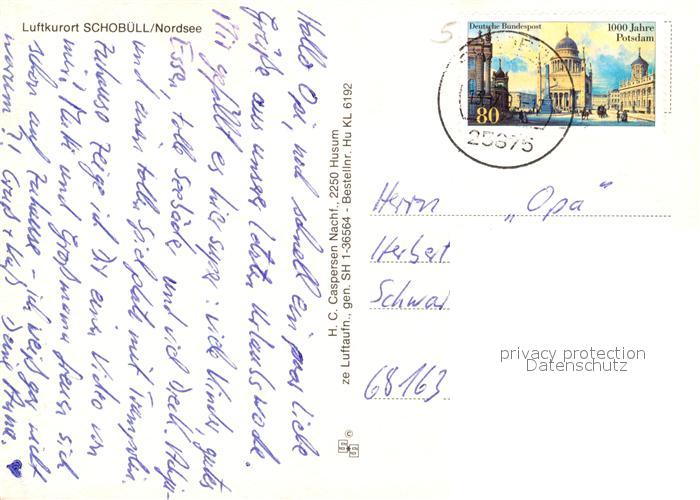 Luftkurort SCHOBÜLL/Nordsee
Hallo Opi, mal schnell ein paar liebe
Grüße aus unser letzten Urlaubswoche.
Mir gefällt es hier super: viele Kinder, gutes
Essen, toll
und viel
und einen tollen Spielplatz mit Trampolin.
Zuhause zeige ich Dir einen Video von
mir. Mutti und Großmama freuen sich
schon auf Zuhause - ich weiß gar nicht
warum?! Gruß + Kuß Deine
H. C. Caspersen Nachf., 2250 Husum
ze Luftaufn., gen. SH 1-36564 - Bestellnr. Hu KL 6192
©
5
Deutsche Bundespost
1000 Jahre
Potsdam
80
Herrn „Opa“
Herbert
Schwar
68163
privacy protection
Datenschutz